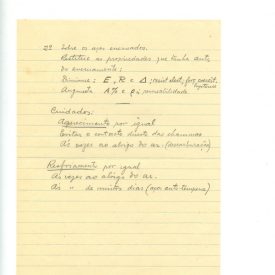 2º Sobre os aços encruados.
Restitue as propriedades que tinha antes
do encruamento:
Diminue: E, R e Δ; resist. elect., forç. coercit.
Augmenta A% e ρ; 
Cuidados:
Aquecimento por igual
Evitar o contacto direto das chammas
Ás vezes ao abrigo do ar. (descarburação)
Resfriamento por igual
Ás vezes ao abrigo do ar.
Ás " de muitos dias (aços auto-tempera)